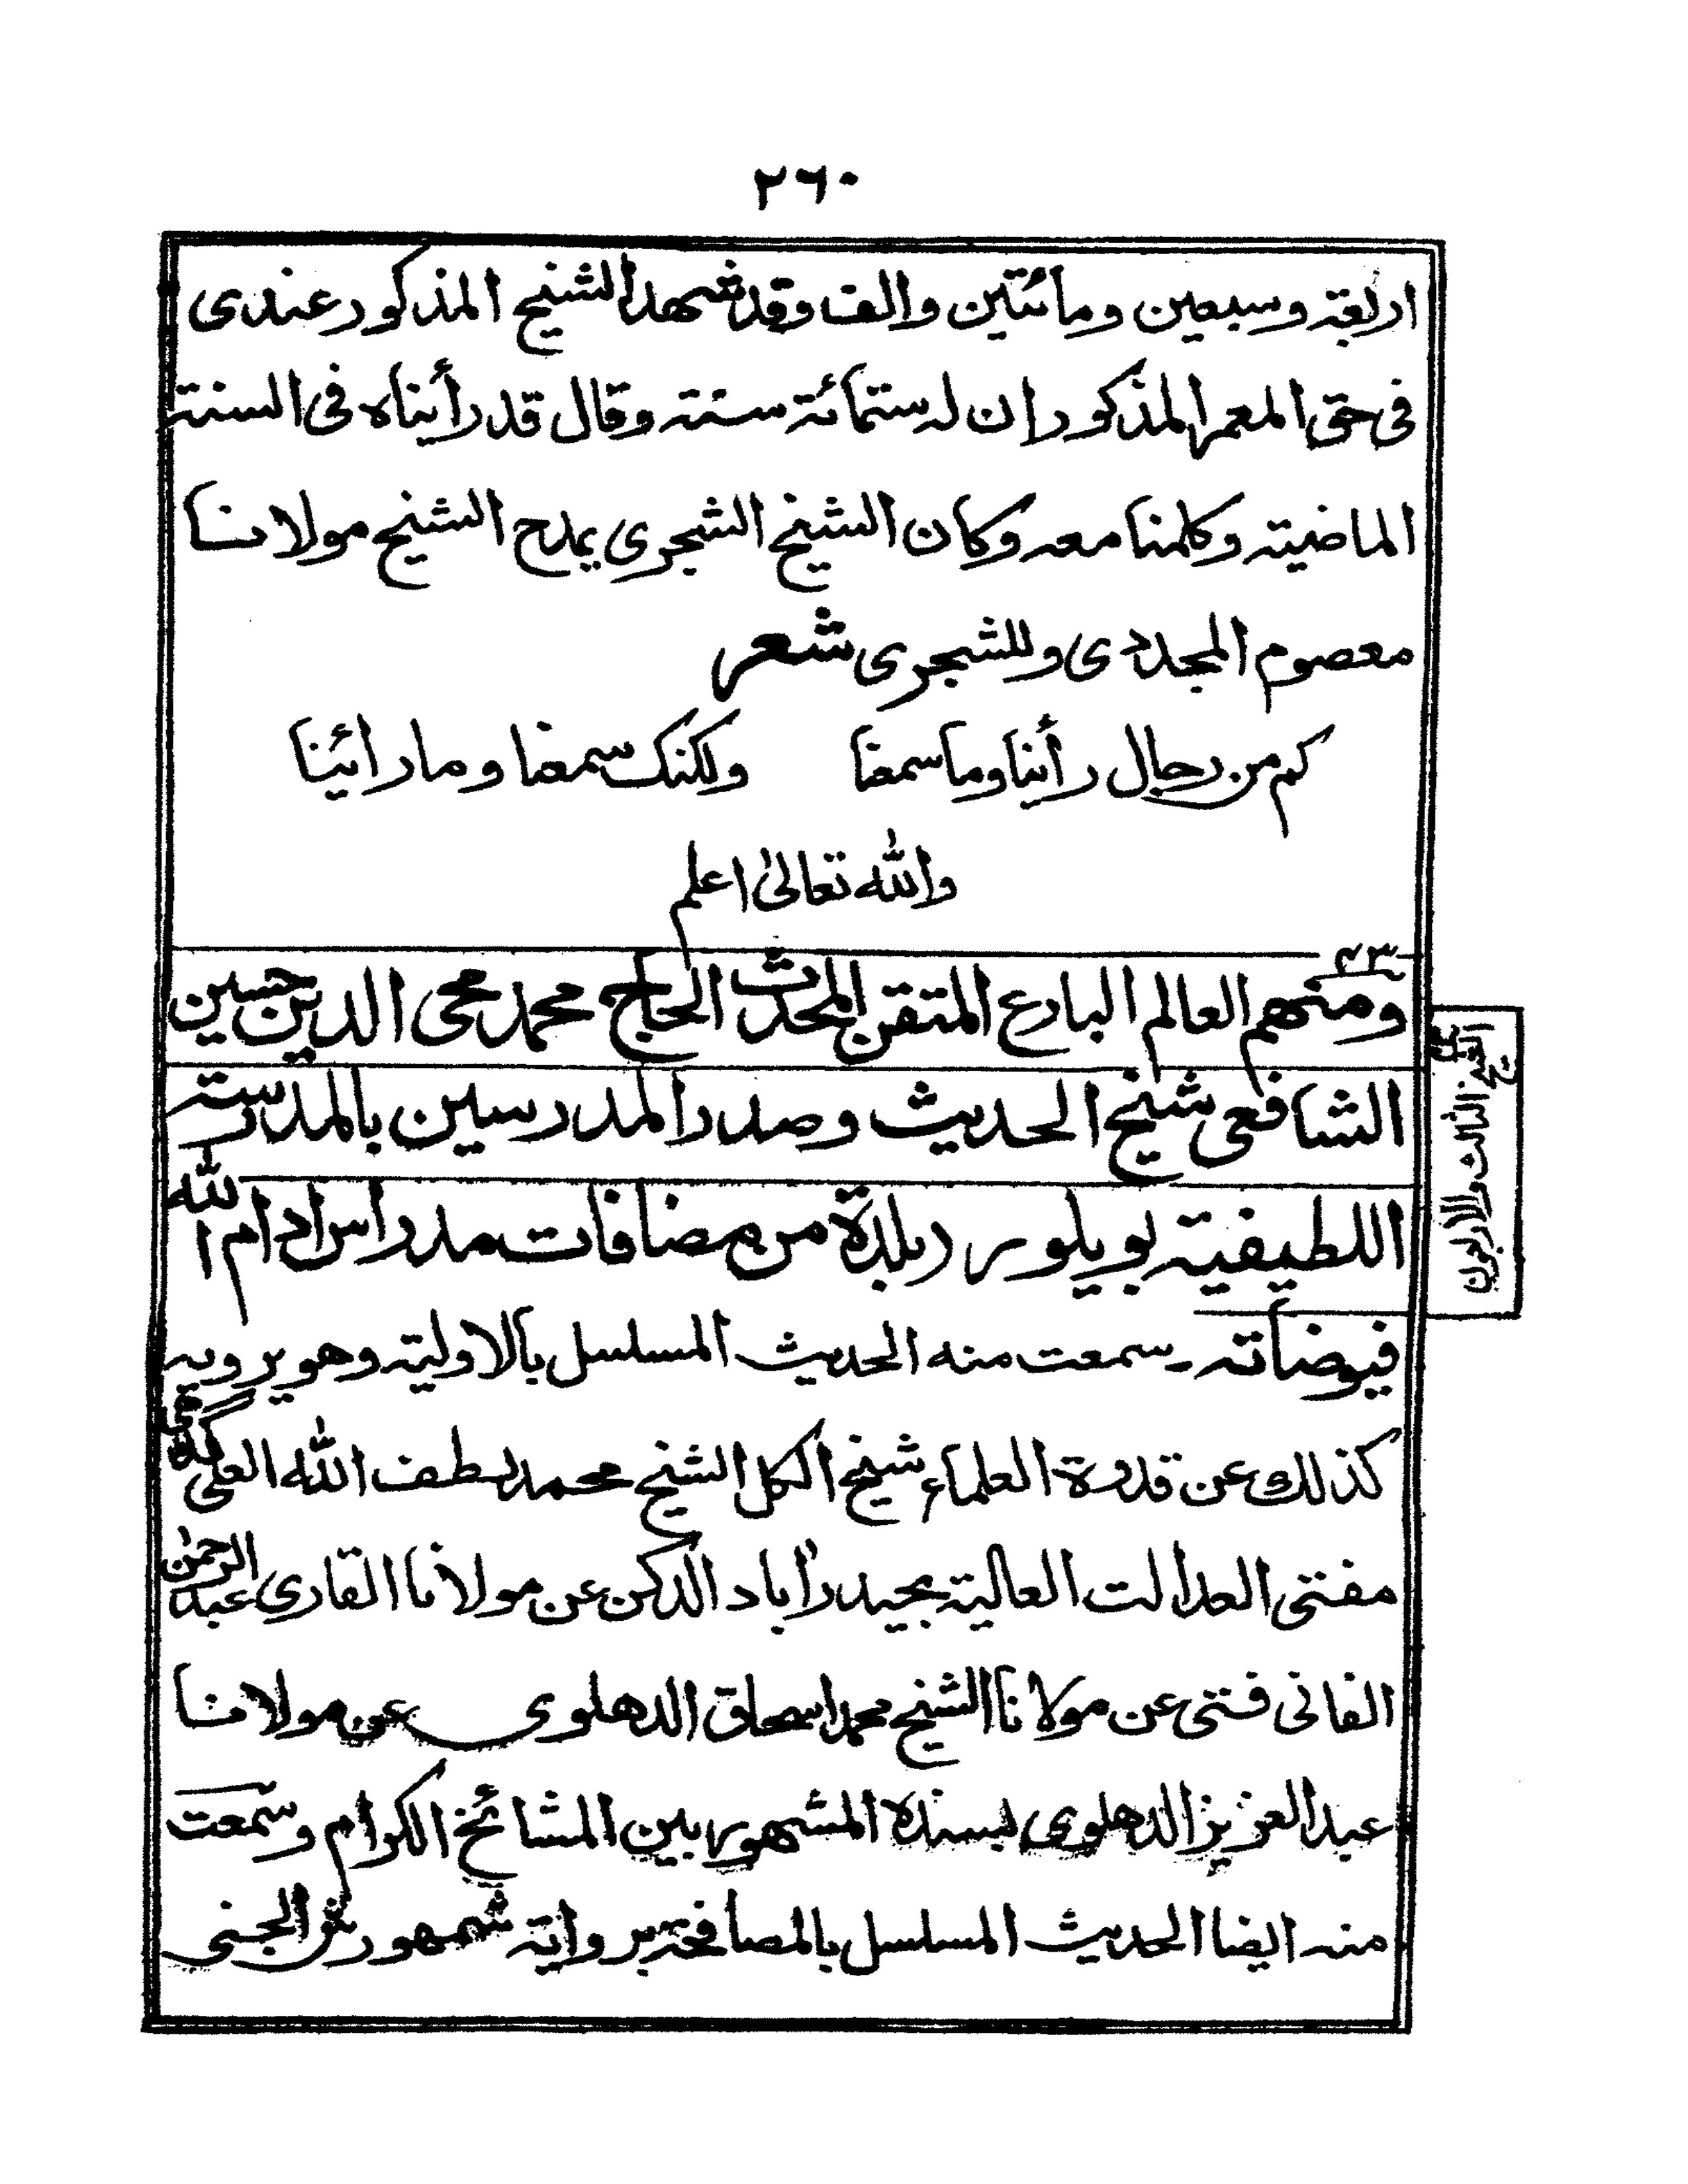 ٢٦٠
اربعة وسبعين ومائتين والف وقد شهد الشيخ المذكور عندى
فى حق المعمر المذكور ان له ستمائة سنة وقال قد رأيناه فى السنة
الماضية وكلمنا معه وكان الشيخ الشجرى يمدح الشيخ مولانا
معصوم المجددى وللشجرى شعر
كم من رجال رأينا وما سمعنا ولكنك سمعنا وما رأينا
والله تعالىٰ اعلم
٤٣
ومنهم العالم البارع المتقن المحدث الحاج محمد محى الدين حسين
الشافعى شيخ الحديث وصدر المدرسين بالمدرسة
الشيخ الثالث والاربعون
اللطيفية بويلور (بلدة من مضافات مدراس ادام الله
فيوضاته ـ سمعت منه الحديث المسلسل بالاولية وهو يرويه
كذلك عن قدوة العلماء شيخ الكل الشيخ محمد لطف الله العلى گڈهى
مفتى العدالت العالية بحيدرآباد الدكن عن مولانا القارى عبد الرحمٰن
الفانى فتى عن مولانا الشيخ محمد اسحاق الدهلوى عن مولانا
عبد العزيز الدهلوى بسنده المشهور بين المشائخ الكرام وسمعت
منه ايضا الحديث المسلسل بالمصافحة برواية شمهورش الجنى